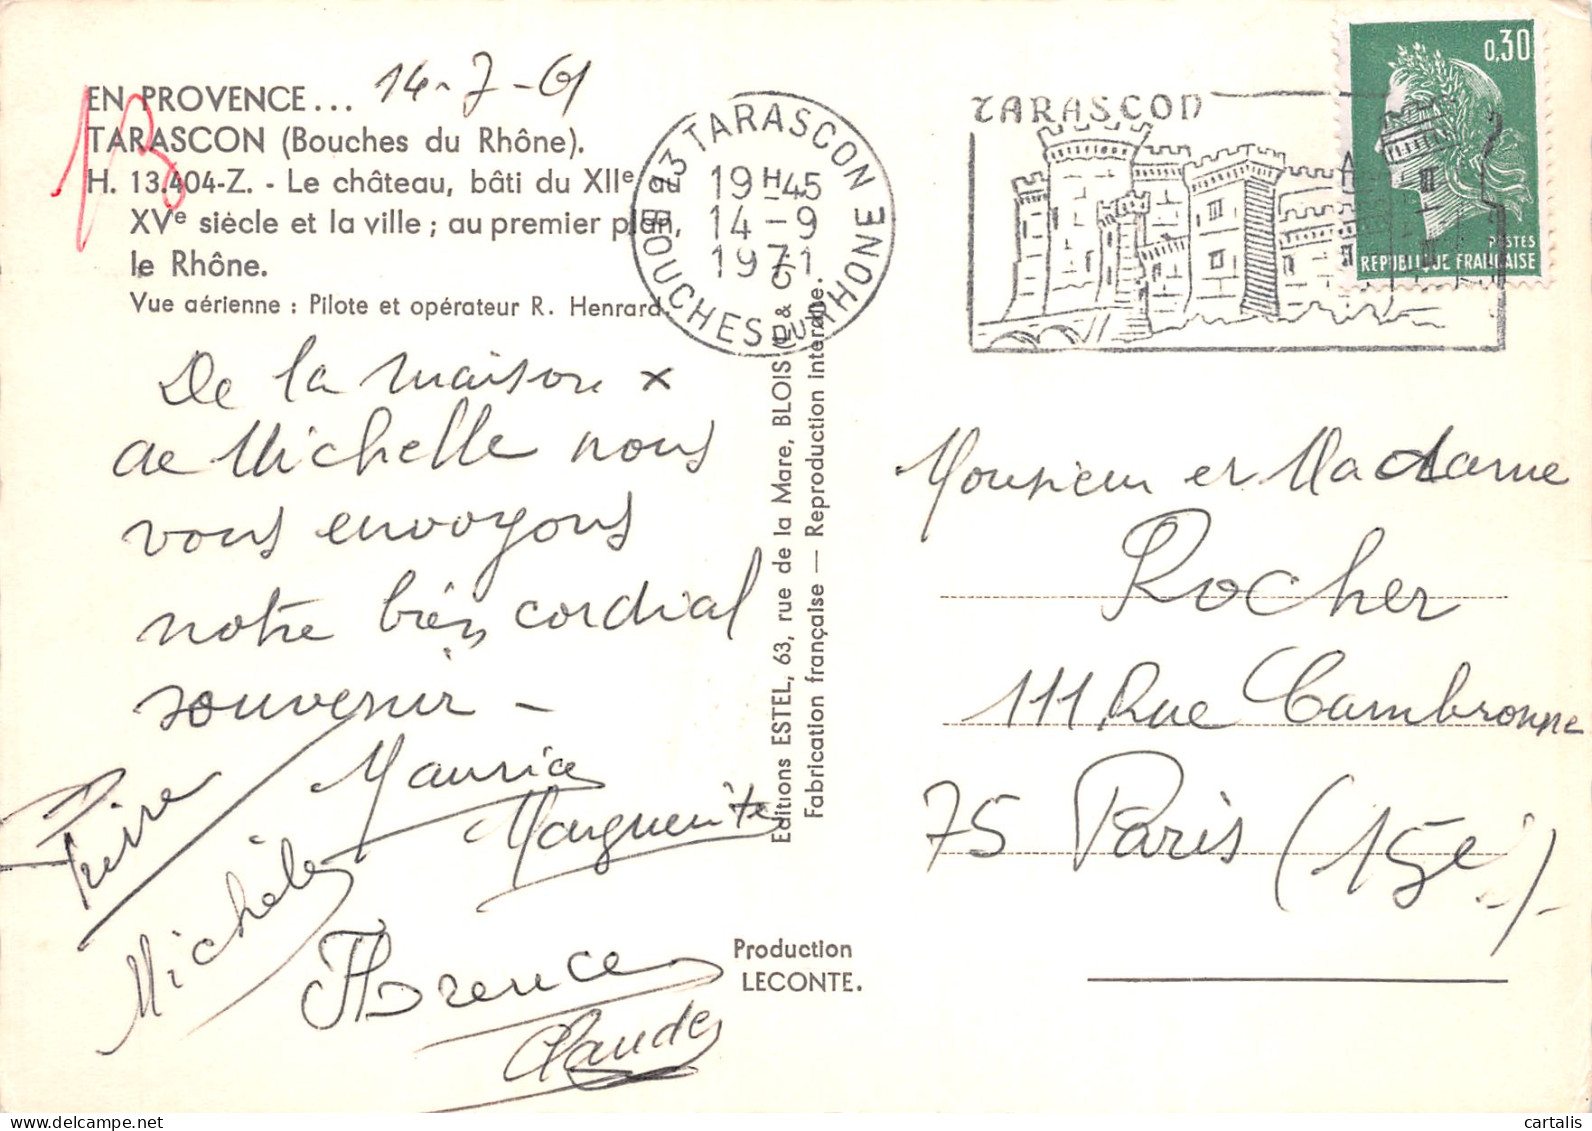 EN PROVENCE...
14-7-61
TARASCON (Bouches du Rhône).
H. 13.404-Z. - Le château, bâti du XIIe au
XVe siècle et la ville ; au premier plan,
le Rhône.
Vue aérienne : Pilote et opérateur R. Henrard.
13
De la maison x
de Michelle nous
vous envoyons
notre bien cordial
souvenir -
Maurice
Marguerite
Michèle
Florence
Claude
Editions ESTEL, 63, rue de la Mare, BLOIS (L & C)
Fabrication française — Reproduction interdite.
Production
LECONTE.
13 TARASCON
19H45
14-9
1971
BOUCHES DU RHONE
TARASCON
0,30
POSTES
REPUBLIQUE FRANÇAISE
Monsieur et Madame
Rocher
111 Rue Cambronne
75 Paris (15è)